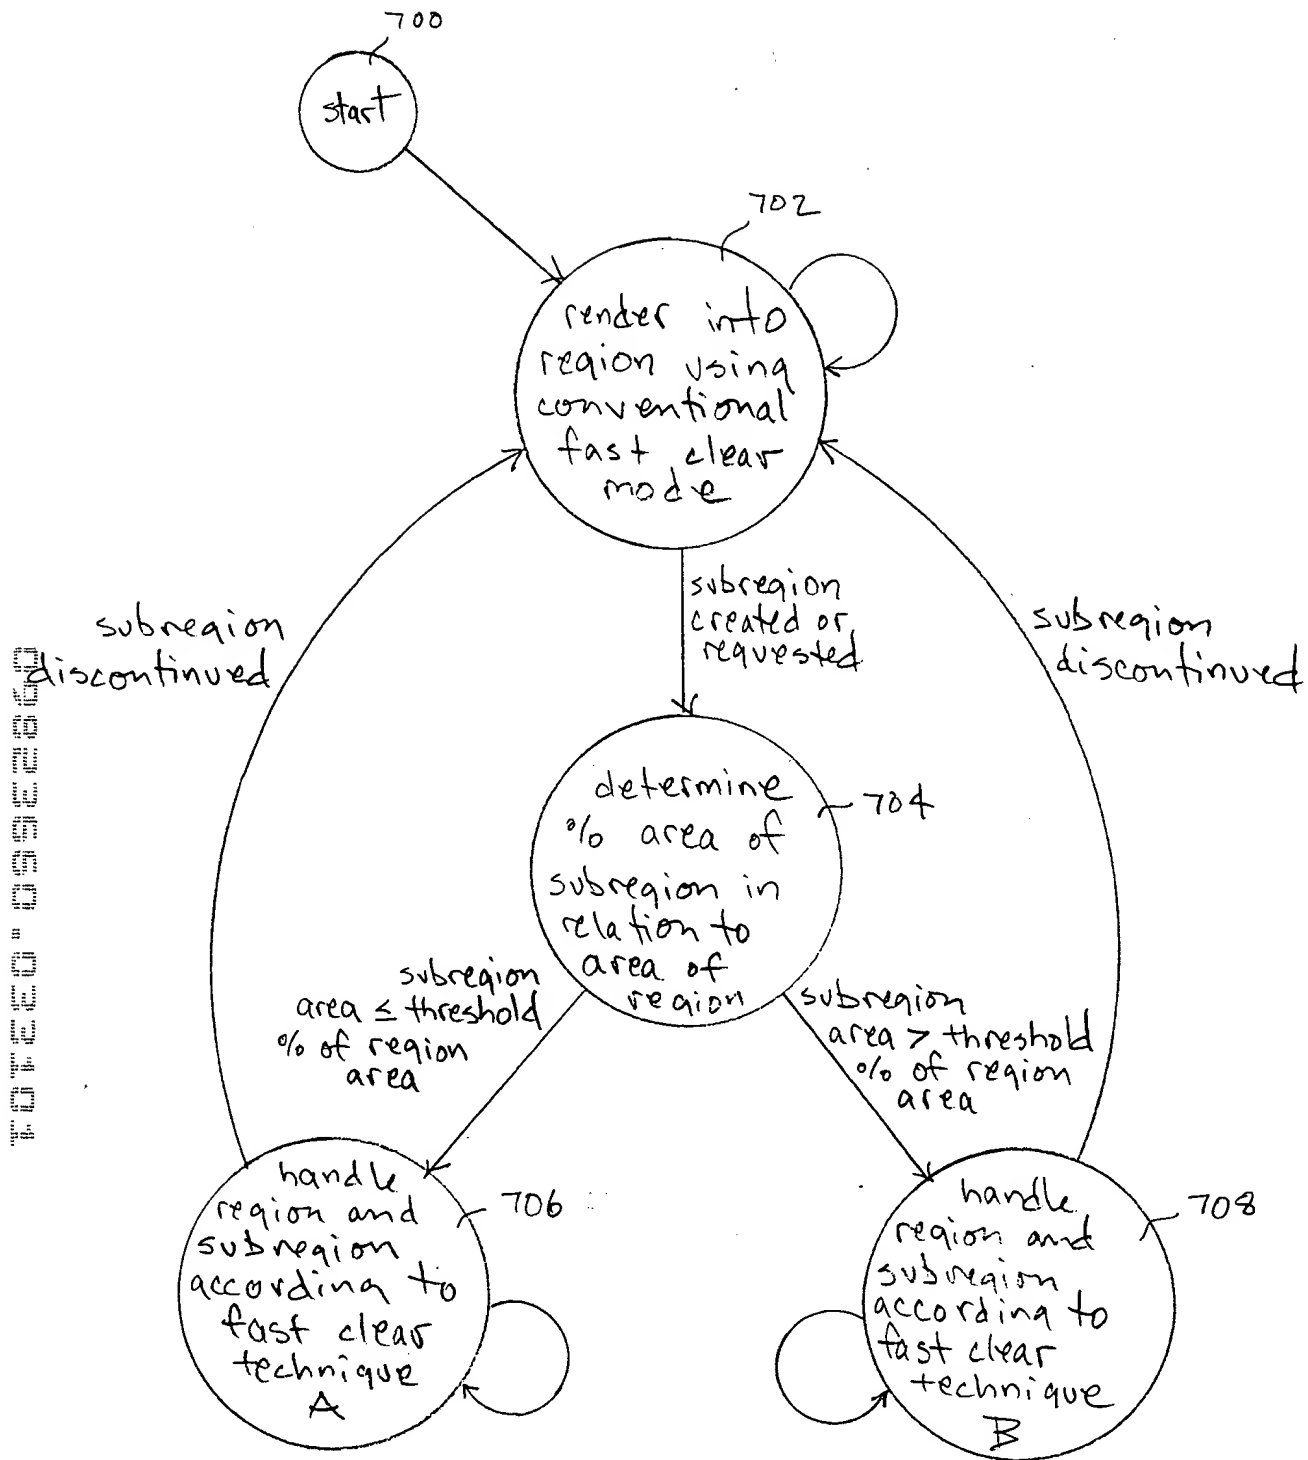 700
start
702
render into
region using
conventional
fast clear
mode
subregion
created or
requested
subregion
discontinued
subregion
discontinued
determine
% area of
subregion in
relation to
area of
region
704
subregion
area ≤ threshold
% of region
area
subregion
area > threshold
% of region
area
handle
region and
subregion
according to
fast clear
technique
A
706
handle
region and
subregion
according to
fast clear
technique
B
708
09823550.033101